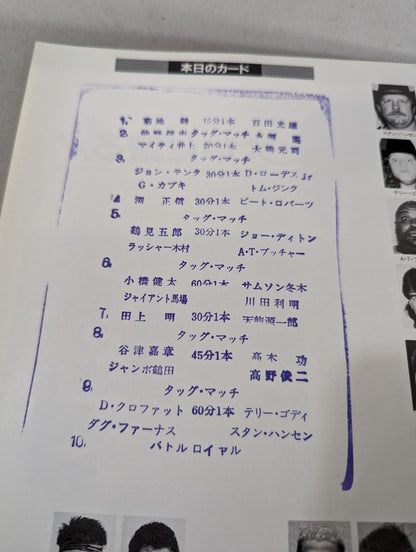 本日のカード
1. 菊地 毅 15分1本 百田光雄
2. タッグ・マッチ
マイティ井上 20分1本 大熊元司
3. タッグ・マッチ
ジョン・テンタ 30分1本 D・ローデスJr
G・カブキ トム・ジンク
4 渕 正信 30分1本 ピート・ロバーツ
5. タッグ・マッチ
鶴見五郎 30分1本 ジョー・ディトン
ラッシャー木村 A・T・ブッチャー
6. タッグ・マッチ
小橋健太 60分1本 サムソン冬木
ジャイアント馬場 川田利明
7. 田上 明 30分1本 天龍源一郎
8. タッグ・マッチ
谷津嘉章 45分1本 高木 功
ジャンボ鶴田 高野俊二
9. タッグ・マッチ
D・クロファット 60分1本 テリー・ゴディ
ダグ・ファーナス スタン・ハンセン
10. バトルロイヤル
スタン・ハンセン
テリー・ゴ